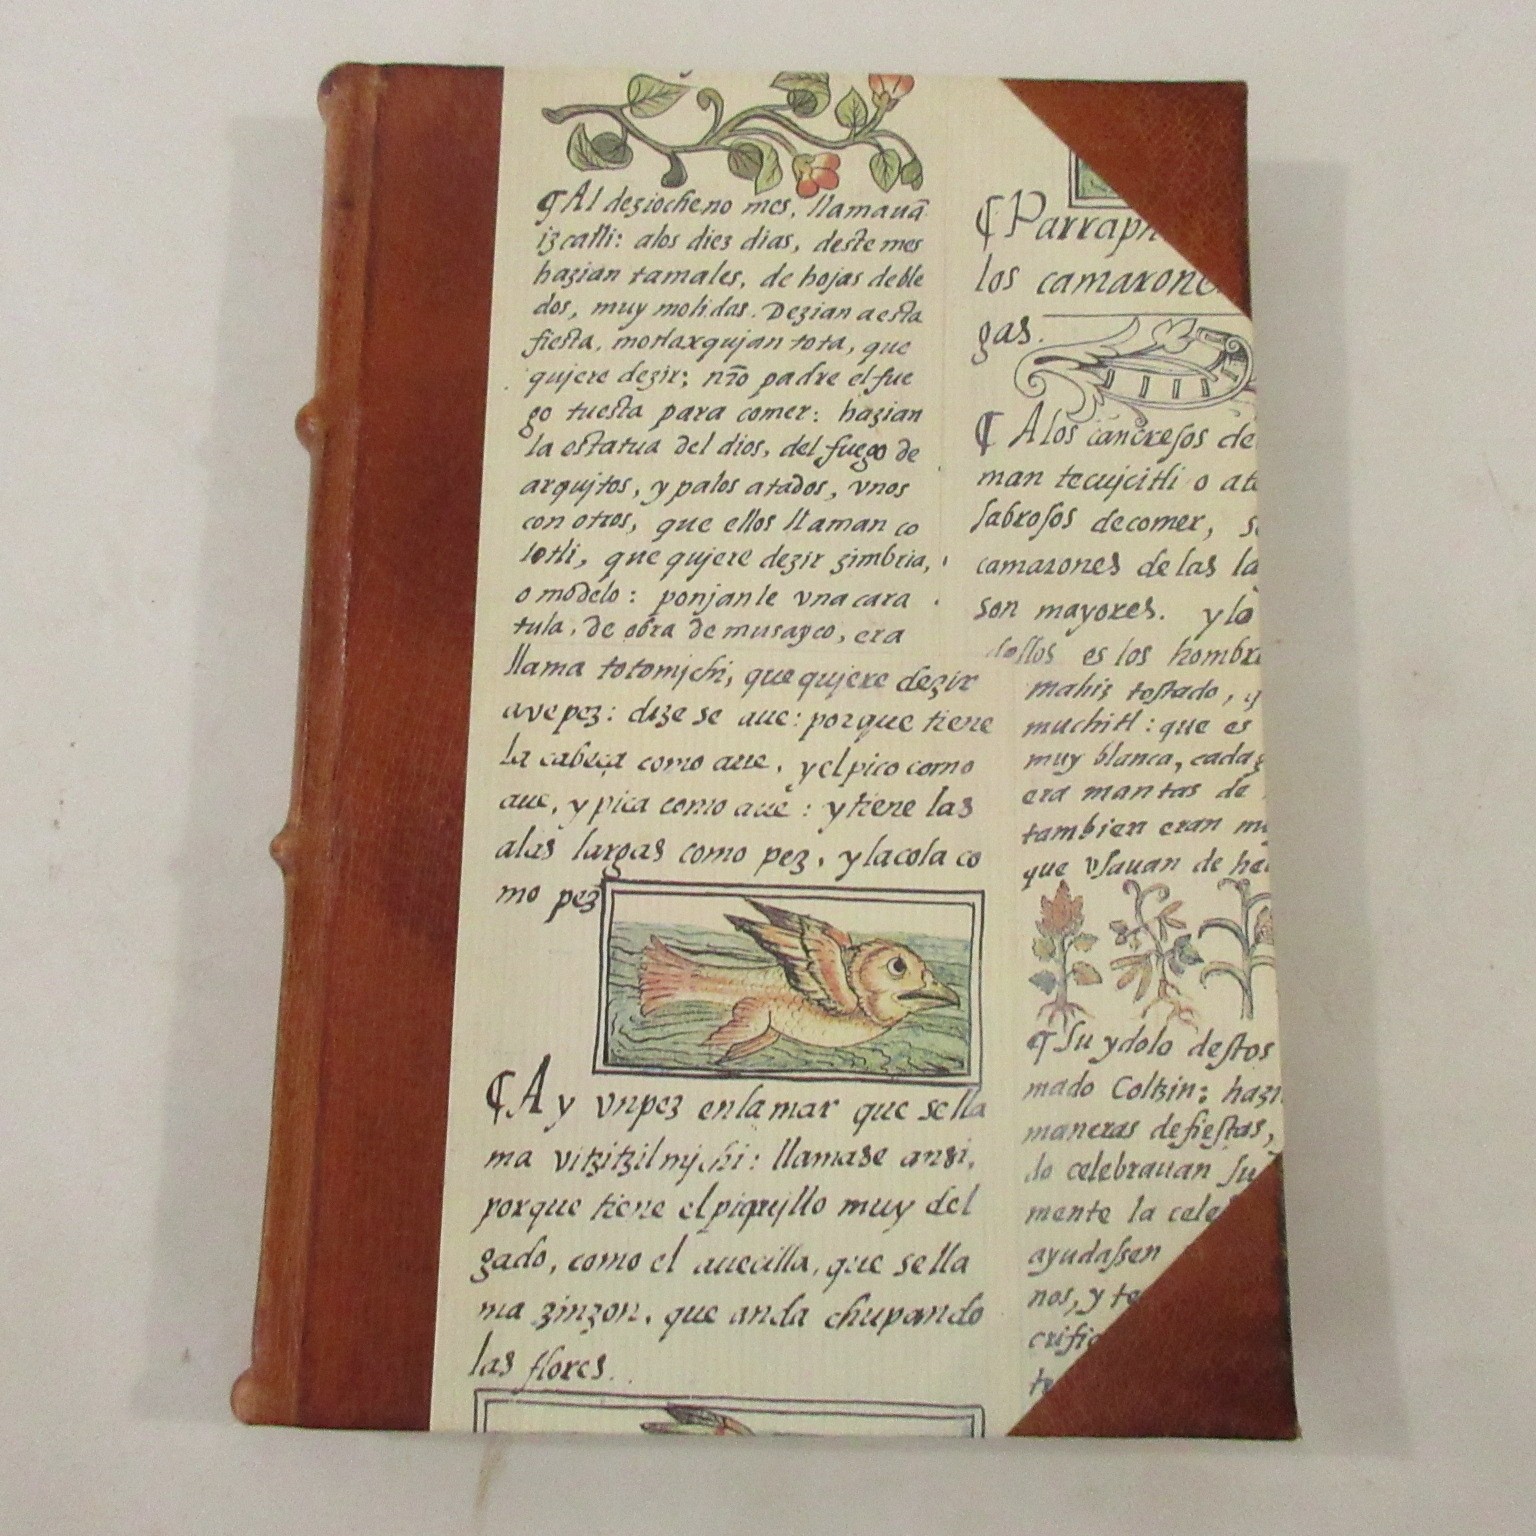 ¶Al deziocheno mes, llamauã
izcatli: alos diez dias, deste mes
hazian tamales, de hojas deble
dos, muy molidas. Dezian aesta
fiesta, motlaxquian tota, que
qujere dezir; nr̃o padre el fue
go tuesta para comer: hazian
la estatua del dios, del fuego de
arqujtos, y palos atados, vnos
con otros, que ellos llaman co
lotli, que qujere dezir zimbria,
o modelo: ponjanle vna cara
tula, de obra de musayco, era
llama totomjchi, que qujere dezir
ave pez: dize se aue: porque tiene
la cabeça como aue, y el pico como
aue, y pica como aue: y tiene las
alas largas como pez, y la cola co
mo pez
¶Ay vn pez en la mar que se lla
ma vitzitzilmjchi: llamase ansi,
porque tiene el piqujllo muy del
gado, como el auecilla, que se lla
ma zinzon, que anda chupando
las flores.
¶Parraph
los camarone
gas.
¶Alos cancrejos de
man tecujcitli o at
sabrosos de comer, s
camarones de las la
son mayores. y lo
dellos es los hombr
mahiz tostado, y
muchitl: que es
muy blanca, cada
era mantas de
tambien eran m
que vsauan de he
¶Su ydolo destos
mado Coltzin: hazi
maneras de fiestas,
do celebrauan su
mente la cele
ayudassen
nos, y te
crific
te